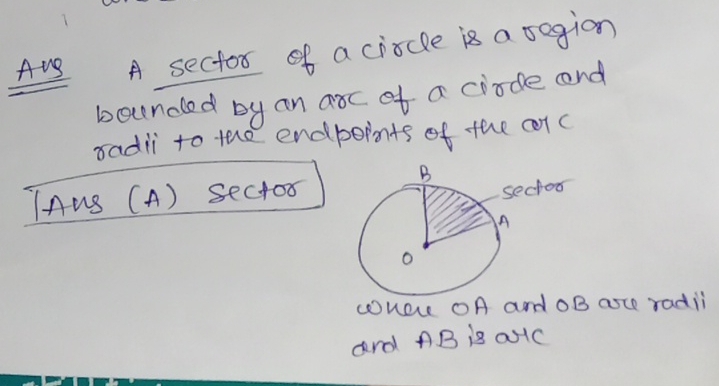 Ans A sector of a circle is a region
bounded by an arc of a circle and
radii to the endpoints of the arc
Ans (A) Sector
B
sector
A
O
where OA and OB are radii
and AB is arc